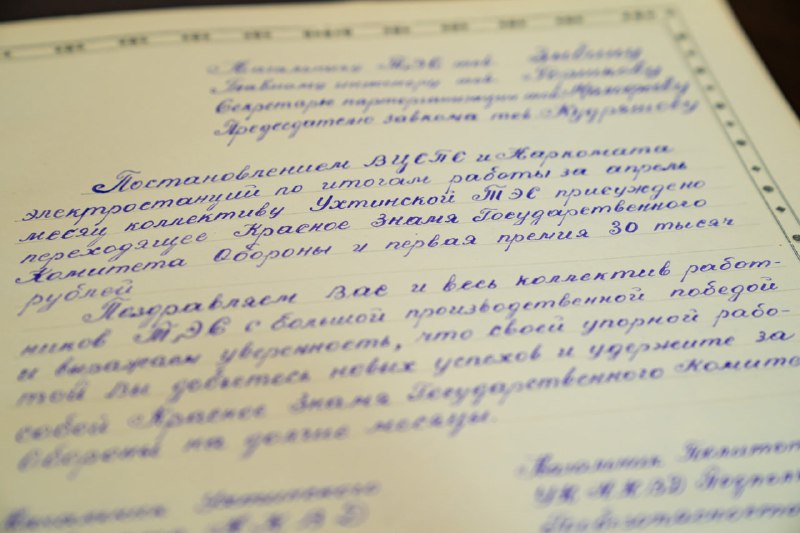 Начальнику ТЭС тов.
Главному инженеру тов.
Секретарю парторганизации тов.
Председателю завкома тов. Кудряшову
Постановлением ВЦСПС и Наркомата
электростанций по итогам работы за апрель
месяц коллективу Ухтинской ТЭС присуждено
переходящее Красное Знамя Государственного
Комитета Обороны и первая премия 30 тысяч
рублей
Поздравляем Вас и весь коллектив работ-
ников ТЭС с большой производственной победой
и выражаем уверенность, что своей упорной рабо-
той Вы добьетесь новых успехов и удержите за
собой Красное Знамя Государственного Комите
Обороны на долгие месяцы.
Начальник
Начальник